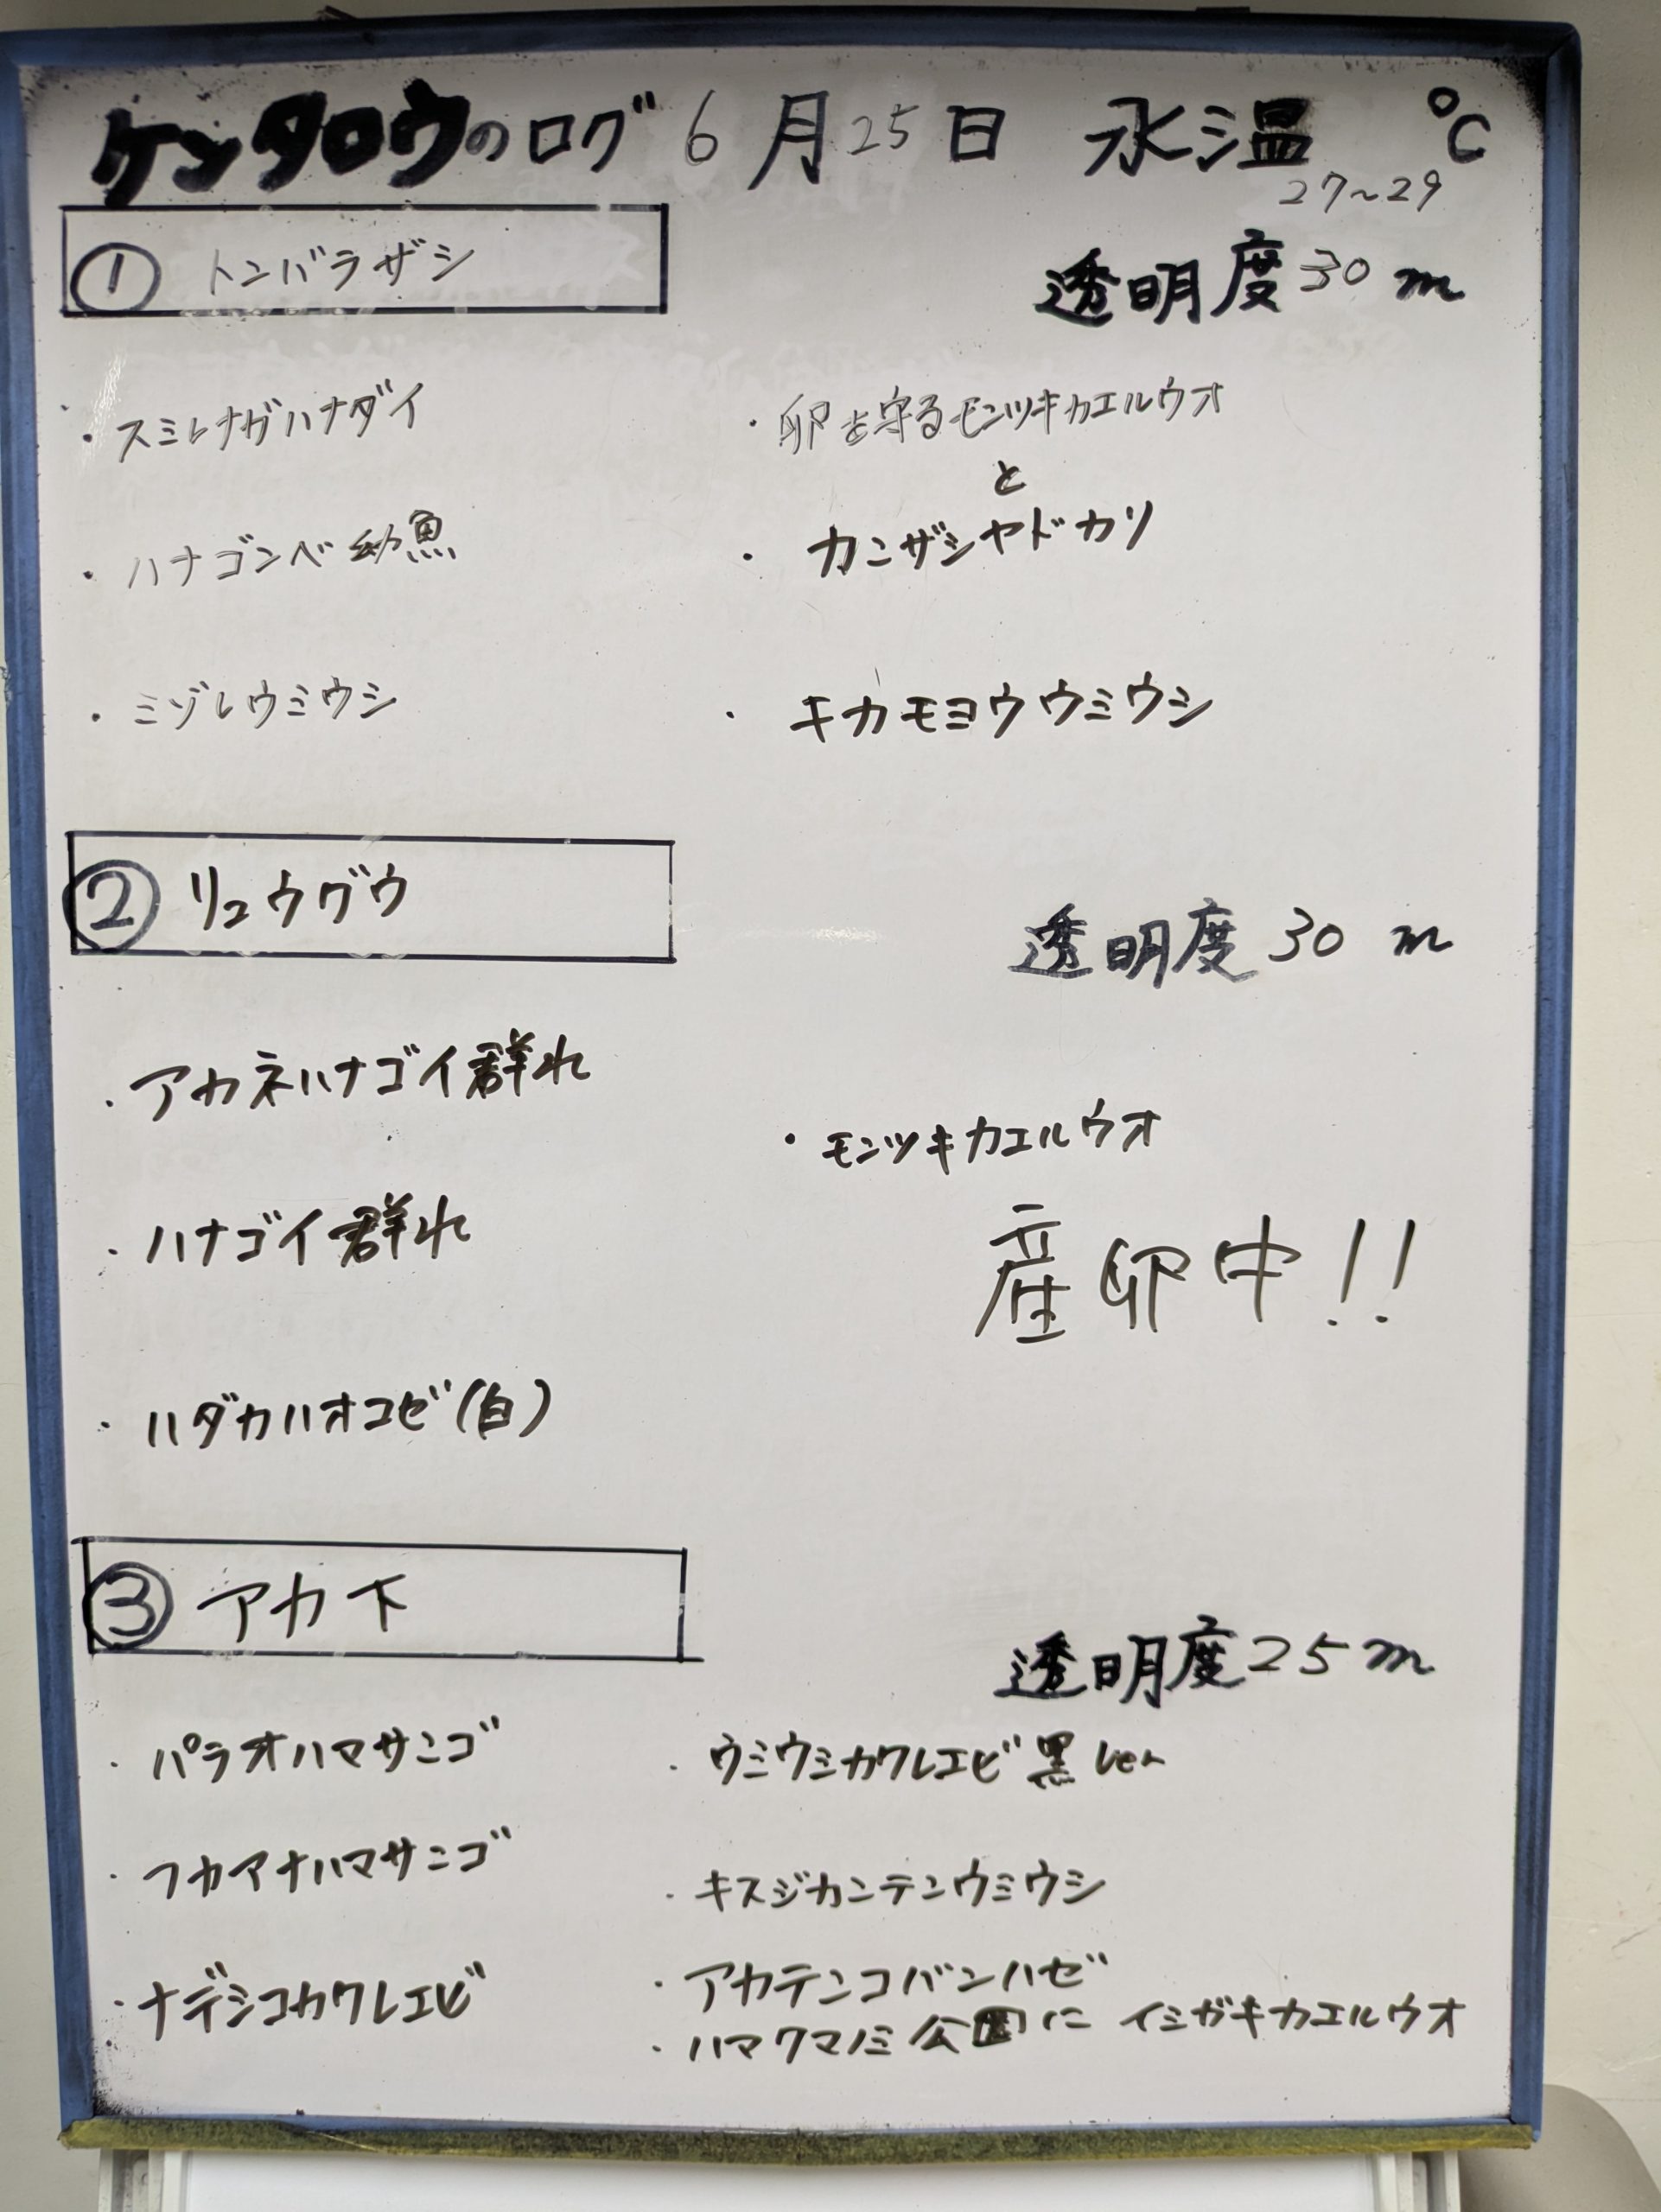 ケンタロウのログ 6月25日 水温 27~29 ℃
① トンバラザシ
透明度 30 m
・スミレナガハナダイ
・ハナゴンベ幼魚
・ミゾレウミウシ
・卵を守るモンツキカエルウオ
と
・カンザシヤドカリ
・キカモヨウウミウシ
② リュウグウ
透明度 30 m
・アカネハナゴイ群れ
・ハナゴイ群れ
・ハダカハオコゼ(白)
・モンツキカエルウオ
産卵中!!
③ アカ下
透明度 25 m
・パラオハマサンゴ
・フカアナハマサンゴ
・ナデシコカクレエビ
・ウミウシカクレエビ黒ver
・キスジカンテンウミウシ
・アカテンコバンハゼ
・ハマクマノミ公園に イシガキカエルウオ